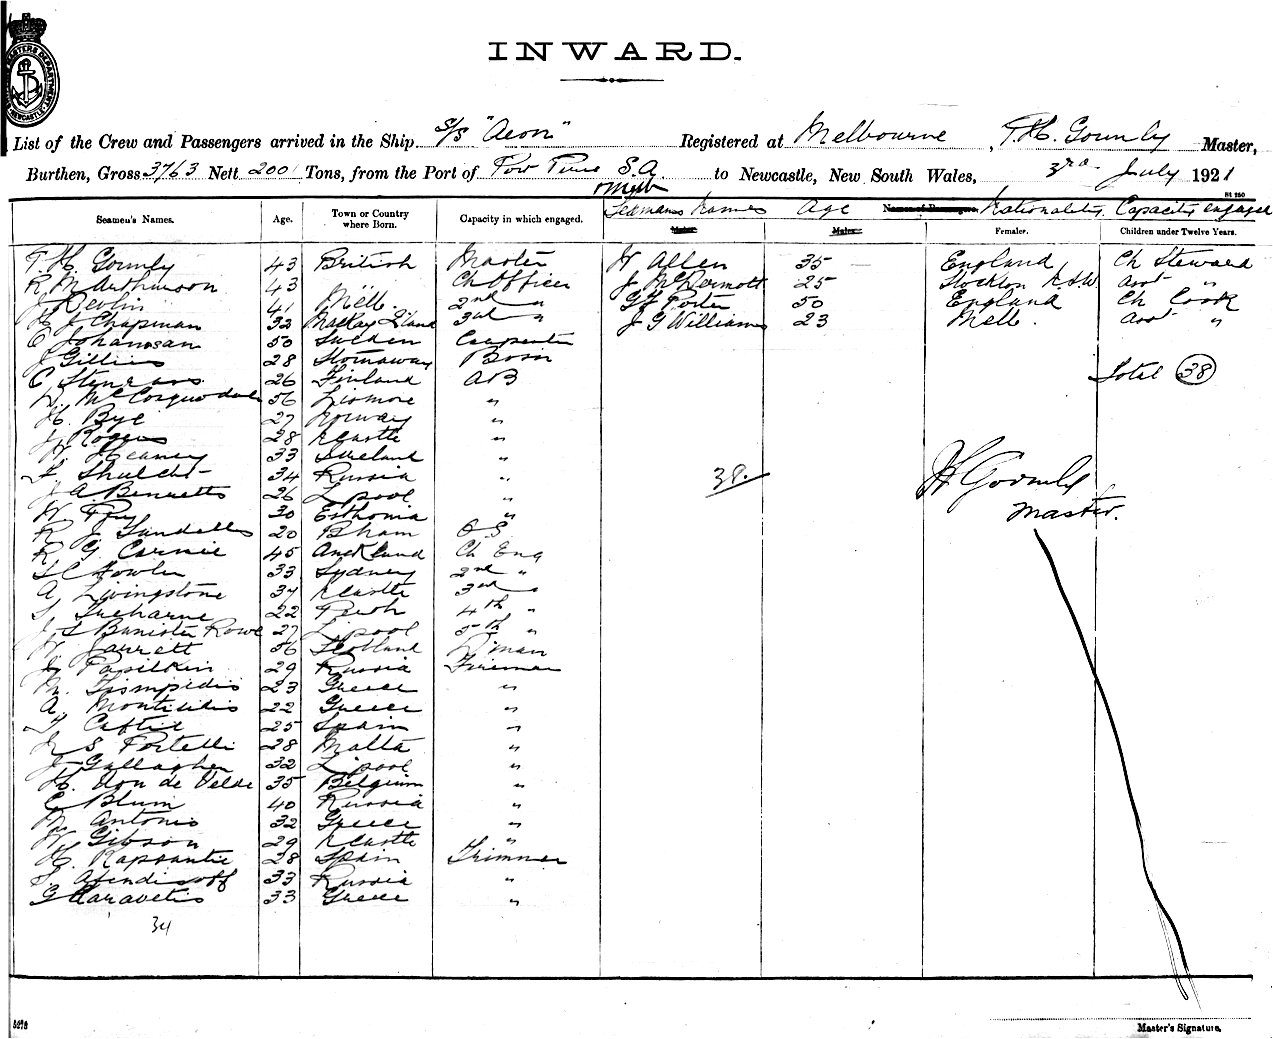 INWARD.
List of the Crew and Passengers arrived in the Ship S/S "Aeon" Registered at Melbourne, T. H. Gormly Master,
Burthen, Gross 3763 Nett 2001 Tons, from the Port of S.A. to Newcastle, New South Wales, 3rd July 1921
Seamen's Names. Age. Town or Country where Born. Capacity in which engaged. Seamans Names Age Nationality. Capacity engaged
Females. Children under Twelve Years.
T. H. Gormly 43 British Master W Allen 35 England Ch Steward
R. M. 43 Ch Officer J McDermott 25 Stockton NSW Asst "
J Devlin 41 Melb. 2nd " Porter 50 England Ch Cook
H J Chapman 32 Mackay Q'land 3rd " J G Williams 23 Melb. Asst "
C Johanssan 50 Sweden Carpenter
J Gillies 28 Stornaway Bosn
C 26 Finland AB Total 38
D. McCorquodale 56 Lismore "
H. Bye 27 Norway "
J Rogers 28 NCastle "
H Heaney 33 Ireland "
F Shulcht 34 Russia " 38.
J A. Bennetts 26 L'pool "
W Fry 30 Esthonia " Gormly
R J 20 B'ham O.S. Master.
R G. Carnie 45 Auckland Ch Eng
S C Fowler 33 Sydney 2nd "
A. Livingstone 37 NCastle 3rd "
S, Treharne 22 Perth 4th "
J, S Banister Rowe 27 L'pool 5th "
W. Jarrett 56 Scotland D'man
J. Pasilkin 29 Russia Fireman
M. 23 Greece "
A, 22 Greece "
25 Spain "
S Portelli 28 Malta "
J Gallagher 32 L'pool "
H. Von de Velde 35 Belgium "
C Blum 40 Russia "
M, Antonis 32 Greece "
W, Gibson 29 NCastle "
28 Spain Trimmer
33 Russia "
G Caravetis 33 Greece "
34
Master's Signature.